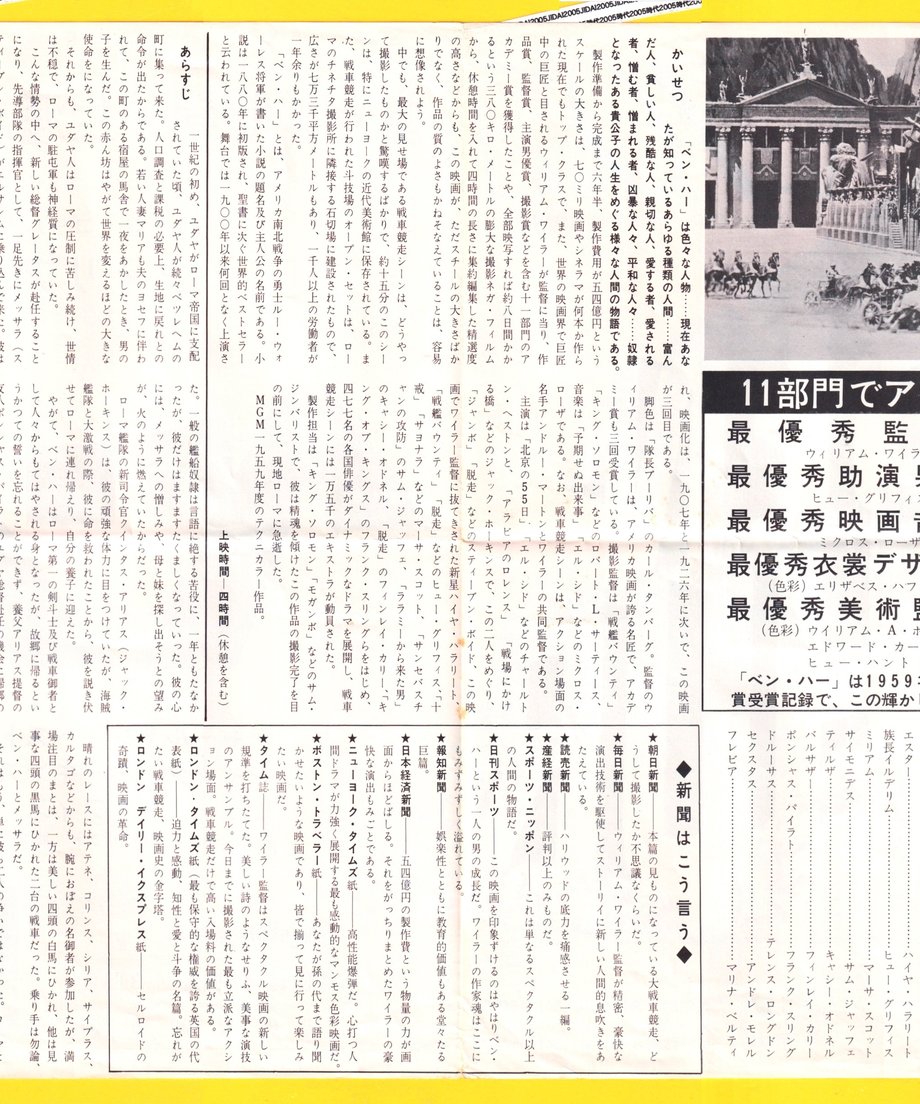 JIDAI2005時代2005JIDAI2005時代2005JIDAI2005時代2005時代2005
かいせつ
「ベン・ハー」は色々な人物……現在あな
たが知っているあらゆる種類の人間……富ん
だ人、貧しい人、残酷な人、親切な人、愛する者、愛される
者、憎む者、憎まれる者、凶暴な人々、平和な人々……奴隷
となったある貴公子の人生をめぐる様々な人間の物語である。
製作準備から完成まで六年半、製作費用が五四億円という
スケールの大きさは、七〇ミリ映画やシネラマが何本か作ら
れた現在でもトップ・クラスで、また、世界の映画界で巨匠
中の巨匠と目されるウィリアム・ワイラーが監督に当り、作
品賞、監督賞、主演男優賞、撮影賞などを含む十一部門のア
カデミー賞を獲得したことや、全部映写すれば約八日間かか
るという三八〇キロ・メートルの膨大な撮影ネガ・フィルム
から、休憩時間を入れて四時間の長さに集約編集した精選度
の高さなどからも、この映画が、ただスケールの大きさばか
りでなく、作品の質のよさもかねそなえていることは、容易
に想像されよう。
中でも、最大の見せ場である戦車競走シーンは、どうやっ
て撮影したものかと驚嘆するばかりで、約十五分のこのシー
ンは、特にニューヨークの近代美術館に保存されている。ま
た、戦車競走が行われた斗技場のオープン・セットは、ロー
マのチネチタ撮影所に隣接する石切場に建設されたもので、
広さが七万三千平方メートルもあり、一千人以上の労働者が
一年余りもかかって作った。
「ベン・ハー」とは、アメリカ南北戦争の勇士ルー・ウォ
ーレス将軍が書いた小説の題名及び主人公の名前である。小
説は一八八〇年に初版され、聖書に次ぐ世界的ベストセラー
と云われている。舞台では一九〇〇年以来何回となく上演さ
れ、映画化は、一九〇七年と一九二六年に次いで、この映画
が三回目である。
脚色は「隊長ブーリバ」のカール・タンバーグ。監督のウ
ィリアム・ワイラーは、アメリカ映画が誇る名匠で、アカデ
ミー賞も三回受賞している。撮影監督は、「戦艦バウンティ」
「キング・ソロモン」などのロバート・L・サーティース、
音楽は「予期せぬ出来事」「エル・シド」などのミクロス・
ローザである。なお、戦車競走シーンは、アクション場面の
名手アンドルー・マートンとワイラーの共同監督である。
主演は「北京の55日」「エル・シド」などのチャールト
ン・ヘストンと、「アラビアのロレンス」、「戦場にかけ
る橋」などのジャック・ホーキンスで、この二人をめぐり、
「ジャンボ」「脱走」などのスティーブン・ボイド、この映
画でワイラー監督に抜てきされた新星ハイヤ・ハラリート、
「戦艦バウンティ」「脱走」などのヒュー・グリフィス、「十
戒」「サヨナラ」などのマーサ・スコット、「サンセバスチ
ャンの攻防」のサム・ジャッフェ、「ララミーから来た男」
のキャシー・オドネル、「脱走」のフィンレイ・カリー、「キ
ング・オブ・キングス」のフランク・スリングらをはじめ、
四七七名の各国俳優がダイナミックなドラマを展開し、戦車
競走シーンには一万五千のエキストラが動員された。
製作担当は「キング・ソロモン」「モガンボ」などのサム・
ジンバリストで、彼は精魂を傾けたこの作品の撮影完了を目
の前にして、現地ローマに急逝した。
MGM一九五九年度のテクニカラー作品。
上映時間―四時間(休憩を含む)
あらすじ
一世紀の初め、ユダヤがローマ帝国に支配
されていた頃、ユダヤ人が続々ベツレヘムの
町に集って来た。人口調査と課税の必要上、生地に戻れとの
命令が出たからである。若い人妻マリアも夫のヨセフに伴わ
れて、この町のある宿屋の馬舎で一夜をあかしたとき、男の
子を生んだ。この赤ん坊はやがて世界を変えるほどの大きな
使命をになっていた。
それからも、ユダヤ人はローマの圧制に苦しみ続け、世情
は不穏で、ローマの駐屯軍も神経質になっていた。
こんな情勢の中へ、新しい総督グレータスが赴任すること
になり、先導部隊の指揮官として、一足先きにメッサラ(ス
た。一般の艦船奴隷は言語に絶する苦役に、一年ともたなか
ったが、彼だけはますますたくましくなっていった。彼の心
には、メッサラへの憎しみや、母と妹を探し出そうとの望み
が、火のように燃えていたからだった。
ローマ艦隊の新司令官クインタス・アリアス(ジャック・
ホーキンス)は、彼の頑強な体力に目をつけていたが、海賊
艦隊と大激戦の際、彼に命を救われたことから、彼を説き伏
せてローマに連れ帰えり、自分の養子に迎えた。
やがて、ベン・ハーはローマ第一の剣士及び戦車御者と
して人々からもてはやされる身となったが、故郷に帰るとい
うかつての誓いを忘れることができず、養父アリアス提督の
11部門でア
最優秀監
ウィリアム・ワイラ
最優秀助演男
ヒュー・グリフィ
最優秀映画音
ミクロス・ローザ
最優秀衣裳デザ
(色彩)エリザベス・ハフ
最優秀美術監
(色彩)ウイリアム・A・ホ
エドワード・カー
ヒュー・ハント
「ベン・ハー」は1959年
賞受賞記録で、この輝かし
ハイヤ・ハラリ
族長イルデリム……ヒュー・グリフィス
ミリアム……マーサ・スコット
サイモニデス……サム・ジャッフェ
ティルザ……キャシー・オドネル
バルサザ……フィンレイ・カリー
ポンシャス・パイラト……フランク・スリング
ドルーサス……テレンス・ロングドン
セクスタス……アンドレ・モレル
フレビア……マリナ・ベルティ
◆新聞はこう言う◆
★朝日新聞――本篇の見ものになっている大戦車競走、ど
うして撮影したか不思議なくらいだ。
★毎日新聞――ウィリアム・ワイラー監督が精密、豪快な
演出技術を駆使してストーリイに新しい人間的息吹きをあ
たえている。
★読売新聞――ハリウッドの底力を痛感させる一編。
★産経新聞――評判以上のみものだ。
★スポーツ・ニッポン――これは単なるスペクタクル以上
の人間の物語だ。
★日刊スポーツ――この映画を印象ずけるのはやはりベン・
ハーという一人の男の成長だ。ワイラーの作家魂はここに
もみずみずしく溢れている。
★報知新聞――娯楽性とともに教育的価値もある堂々たる
巨篇。
★日本経済新聞――五四億円の製作費という物量の力が画
面からほどばしる。それをがっちりまとめたワイラーの豪
快な演出もみごとである。
★ニューヨーク・タイムズ紙――高性能爆弾だ。心打つ人
間ドラマが力強く展開する最も感動的なマンモス色彩映画だ。
★ボストン・トラベラー紙――あなたが孫の代まで語り聞
かせたいような映画であり、皆で揃って見に行って楽しみ
たい映画だ。
★タイム誌――ワイラー監督はスペクタクル映画の新しい
規準を打ちたてた。美しい詩のようなせりふ、美事な演技
のアンサンブル。今日までに撮影された最も立派なアクシ
ョン場面。戦車競走だけで高い入場料の価値がある。
★ロンドン・タイムズ紙(最も保守的な権威を誇る英国の代
表紙)――迫力と感動、知性と愛と斗争の名篇。忘れが
たい戦車競走、映画史の金字塔。
★ロンドン デイリー・イクスプレス紙――セルロイドの
奇蹟、映画の革命。
晴れのレースにはアテネ、コリンス、シリア、サイプラス、
カルタゴなどからも、腕におぼえの名御者が参加したが、満
場注目のまとは、一方は美しい四頭の白馬にひかれ、他は見
事な四頭の黒馬にひかれた二台の戦車だった。乗り手は勿論、
ベン・ハーとメッサラだ。